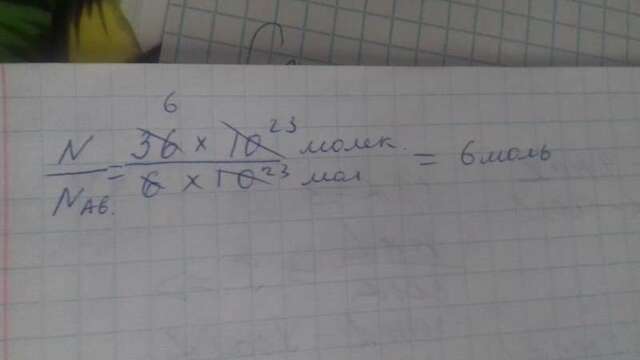 6
N/N_Ав. = 36 × 10²³ молек. / 6 × 10²³ мол = 6 моль